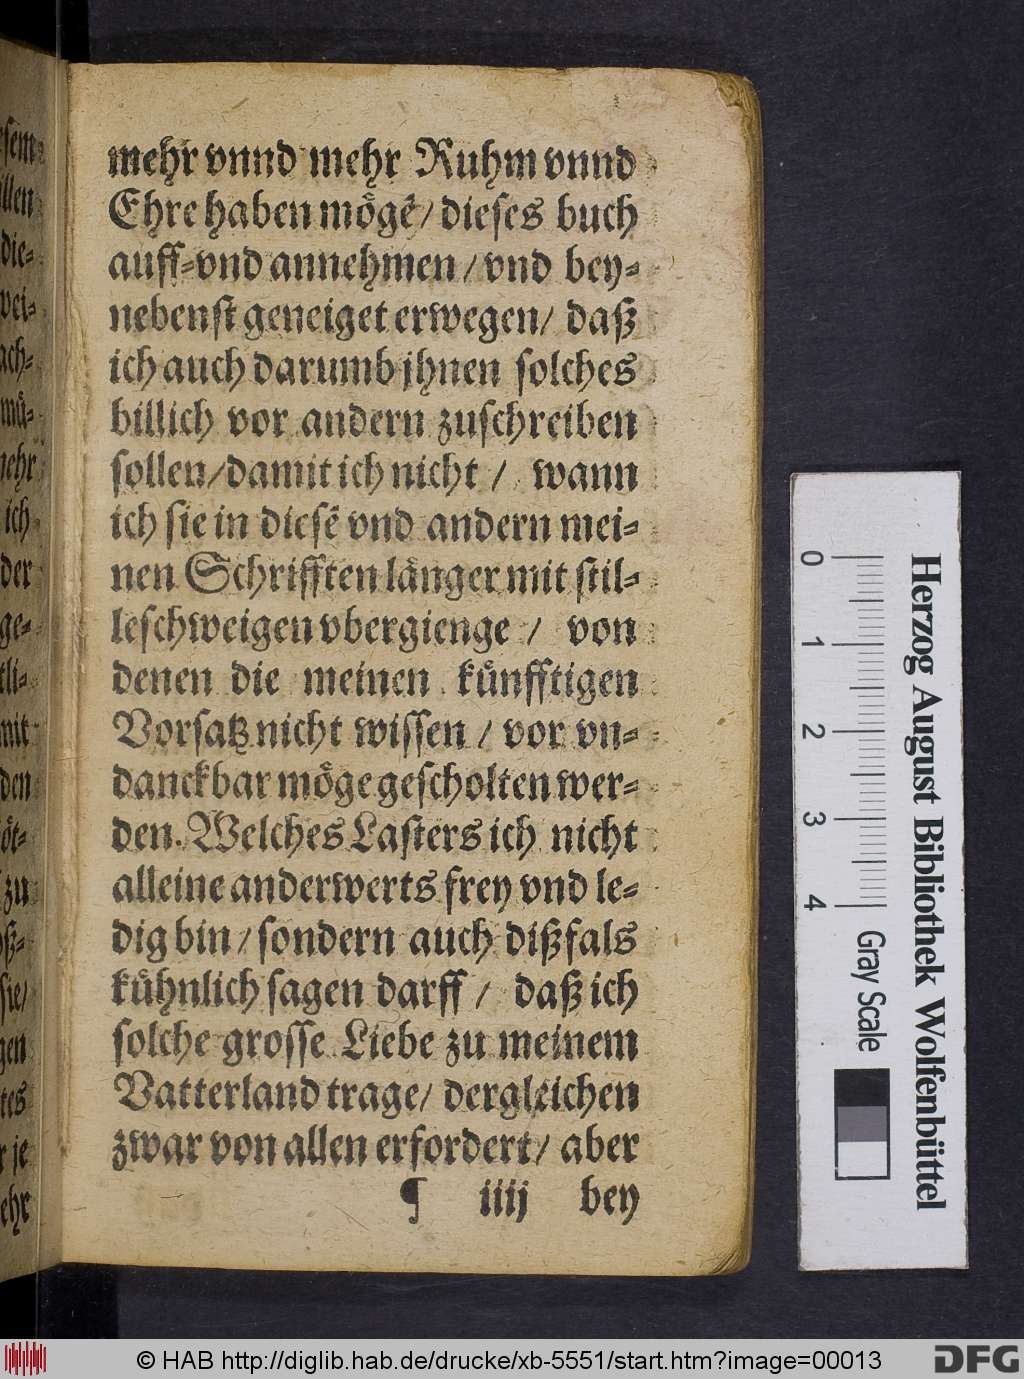 mehr vnnd mehr Ruhm vnnd
Ehre haben mögẽ/ dieses buch
auff-vnd annehmen/ vnd bey-
nebenst geneiget erwegen/ daß
ich auch darumb jhnen solches
billich vor andern zuschreiben
sollen/damit ich nicht / wann
ich sie in diesẽ vnd andern mei-
nen Schrifften länger mit stil-
leschweigen vbergienge / von
denen die meinen künfftigen
Vorsatz nicht wissen / vor vn-
danckbar möge gescholten wer-
den. Welches Lasters ich nicht
alleine anderwerts frey vnd le-
dig bin/ sondern auch dißfals
kühnlich sagen darff / daß ich
solche grosse Liebe zu meinem
Vatterland trage/ dergleichen
zwar von allen erfordert/ aber
¶ iiij bey
sem
llen
die-
vei-
ach-
mä-
nehr
ich
der
ge-
tli-
mit
den
öt-
zu
oß-
sie/
gen
tes
r je
ehr
0 1 2 3 4 Gray Scale
Herzog August Bibliothek Wolfenbüttel
© HAB http://diglib.hab.de/drucke/xb-5551/start.htm?image=00013
DFG